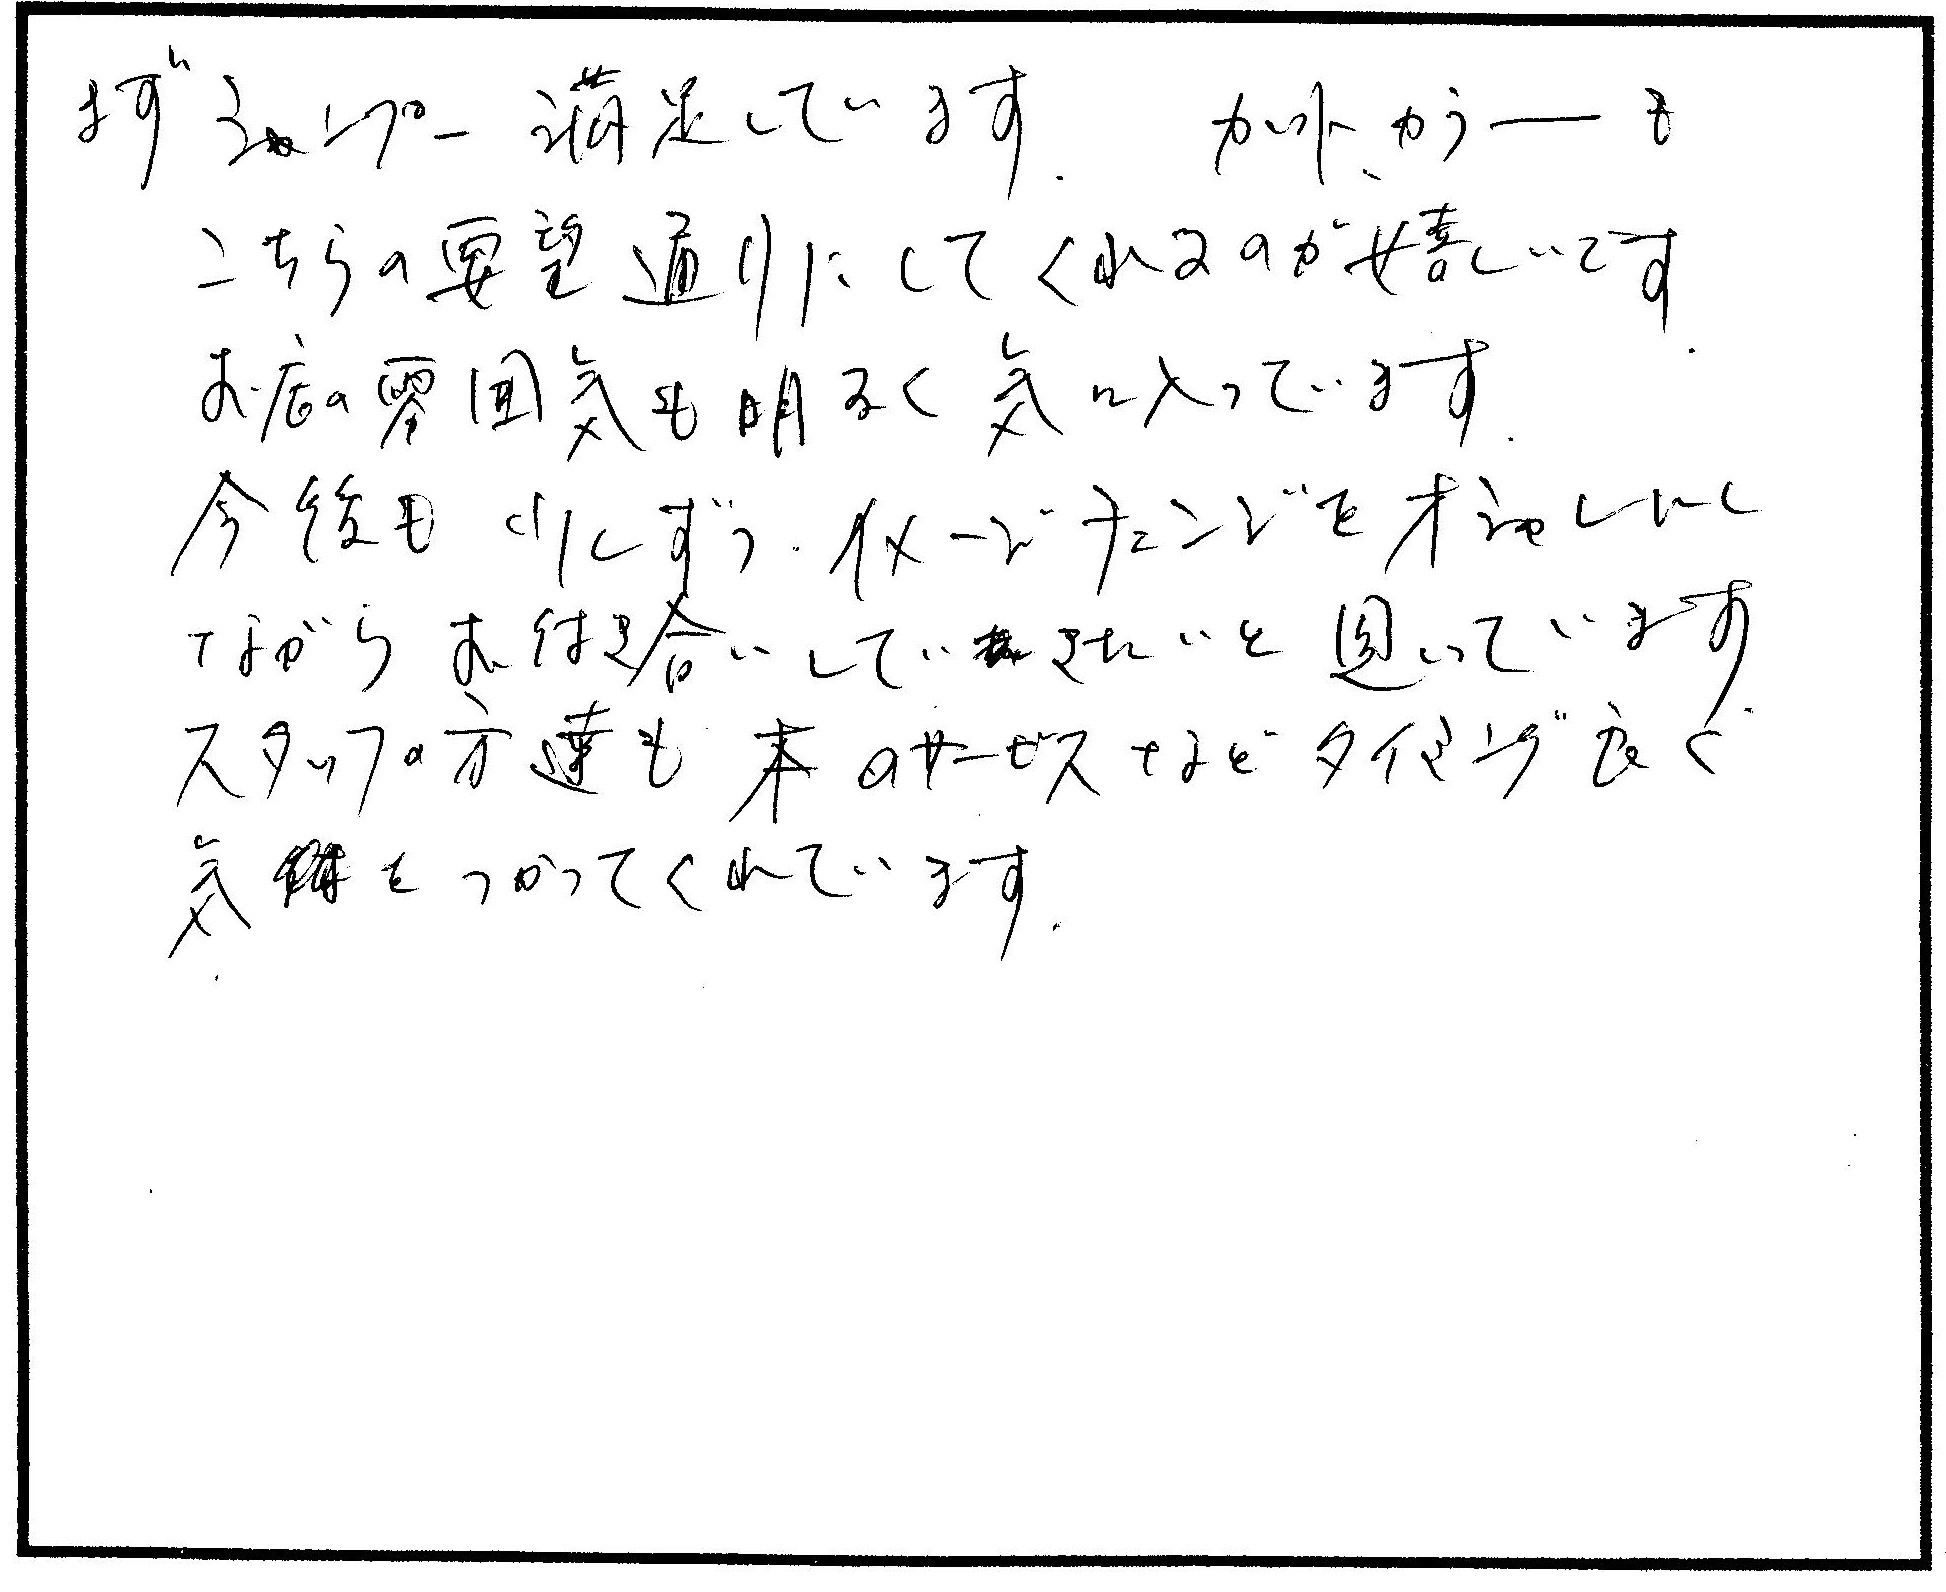 まずシャンプー満足しています. カット、カラーも
こちらの要望通りにしてくれるのが嬉しいです.
お店の雰囲気も明るく気に入っています.
今後も少しずつ.イメージチェンジをオシャレにし
ながらお付き合いしていきたいと思っています.
スタッフの方達も本のサービスなどタイミング良く
気をつかってくれています.